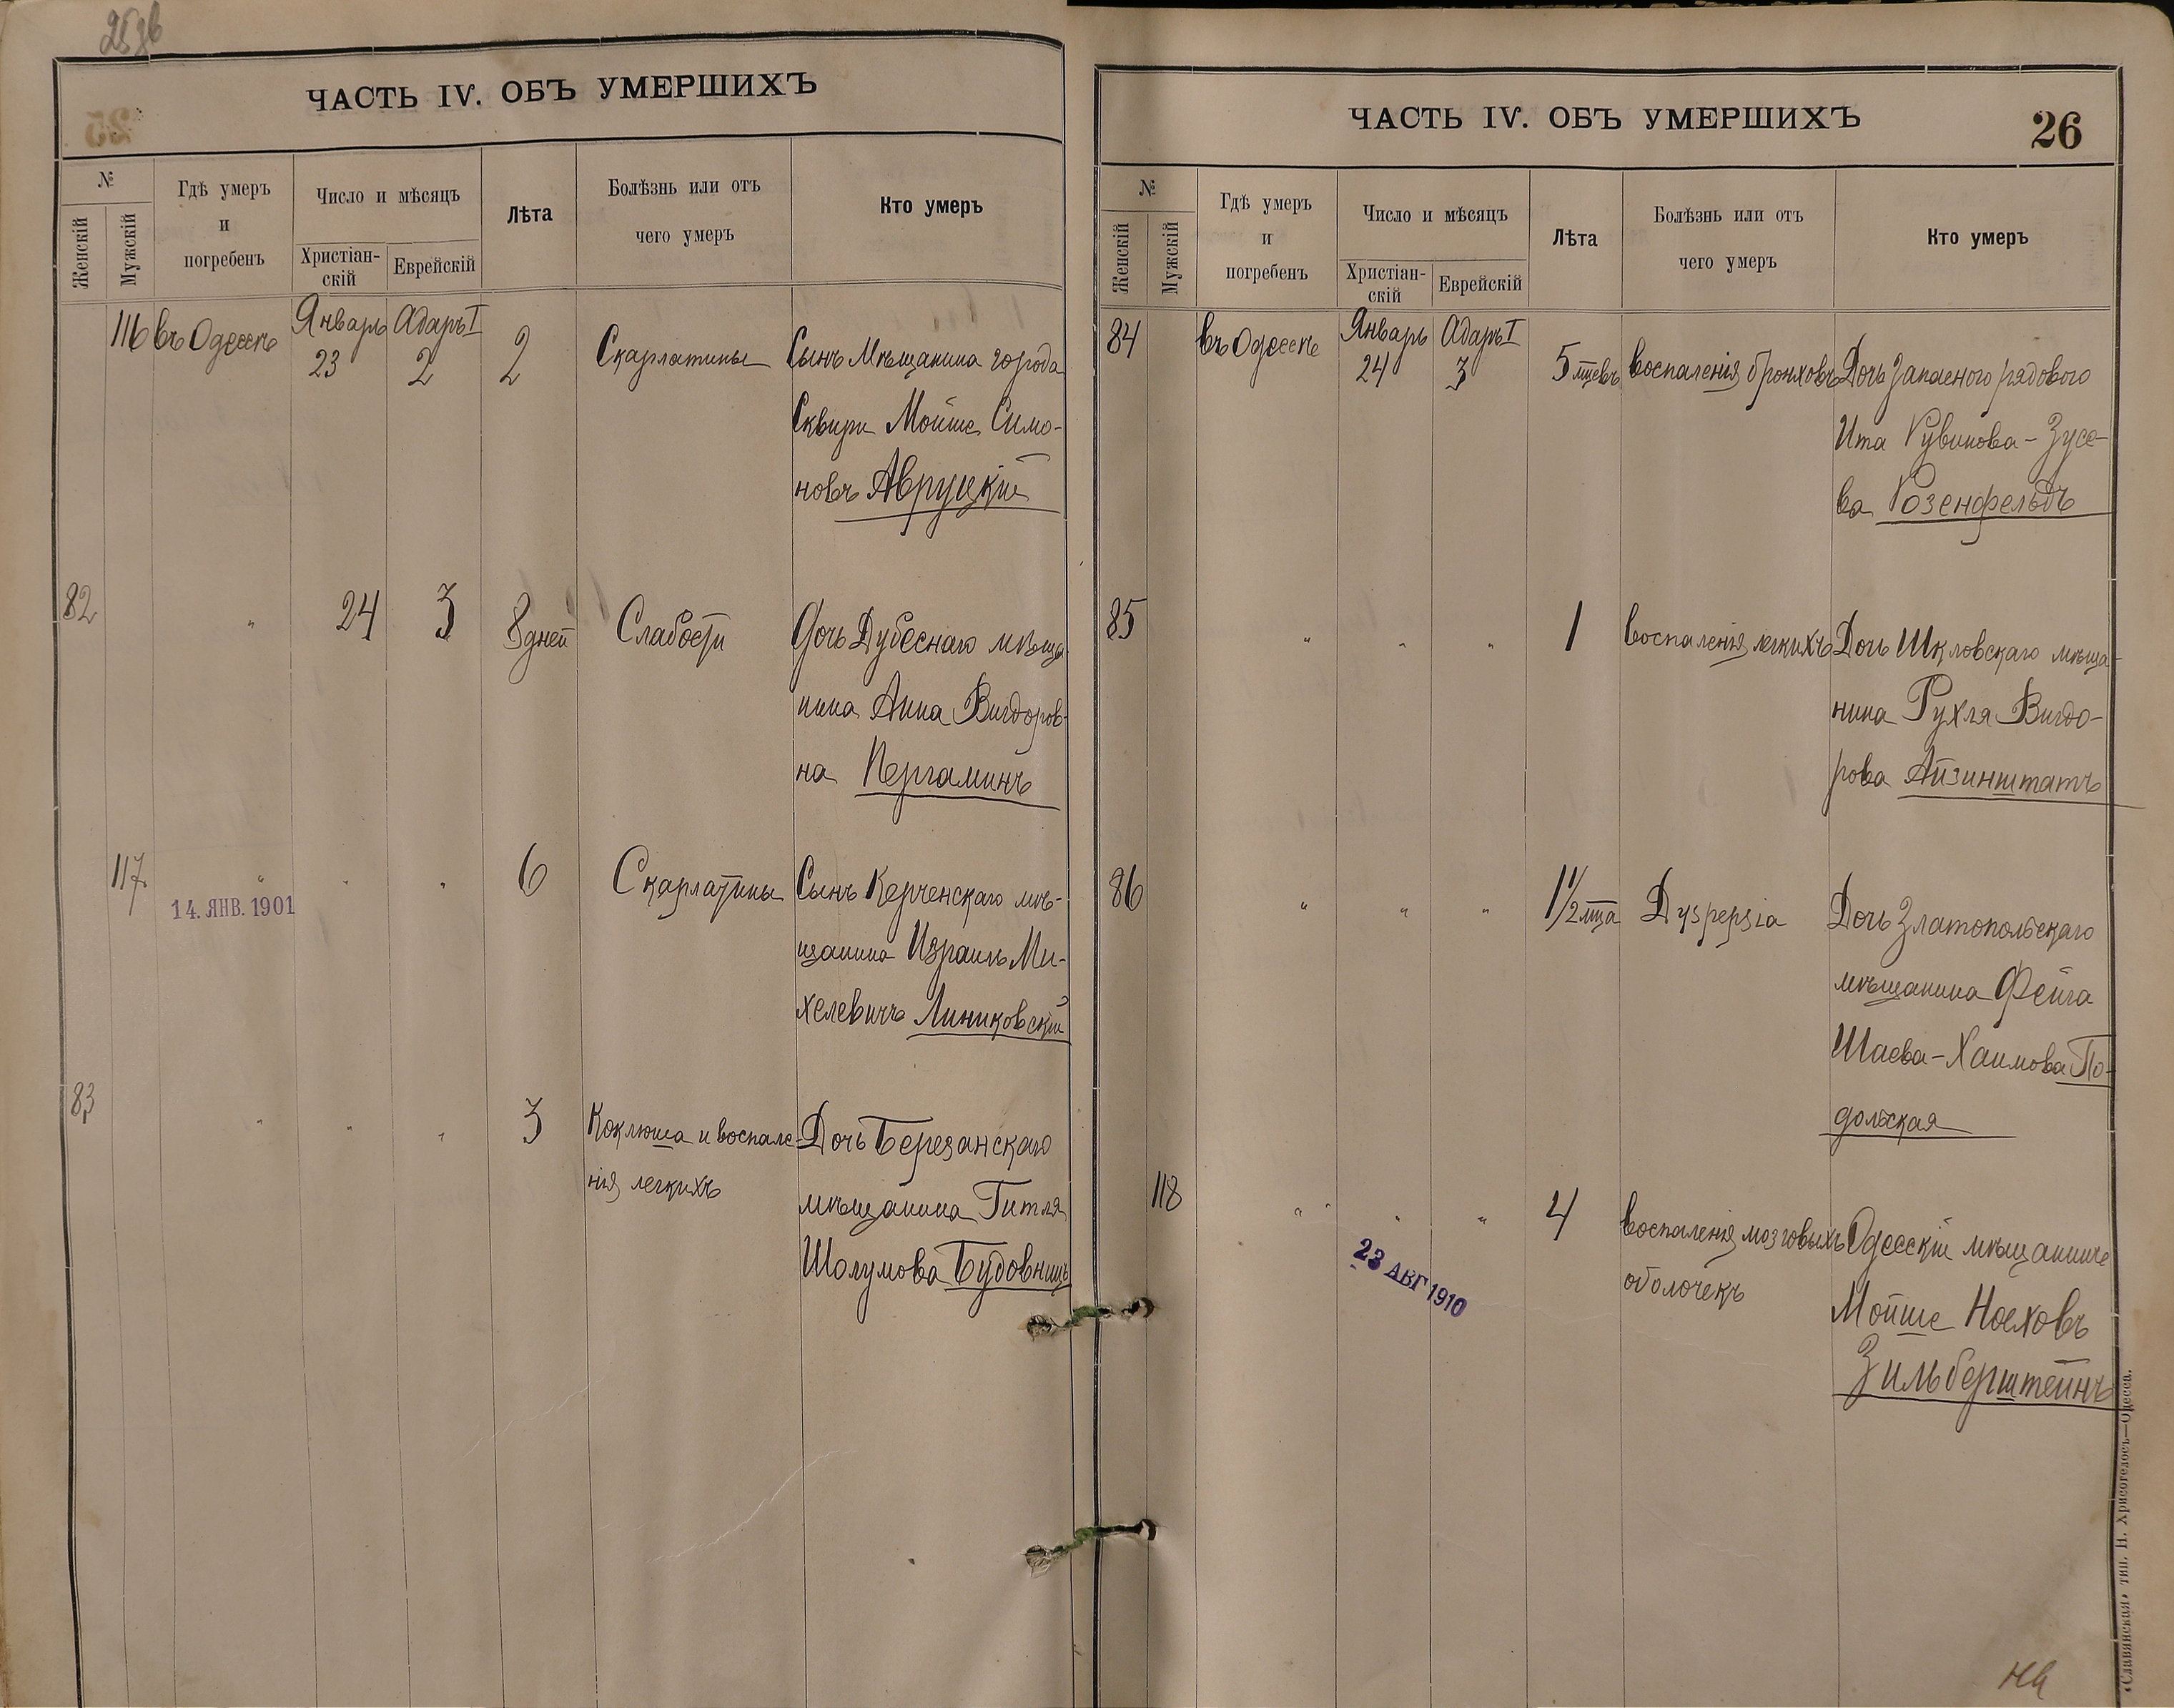 ЧАСТЬ IV. ОБЪ УМЕРШИХЪ
№
Женскій
Мужскій
Гдѣ умеръ
и
погребенъ
Число и мѣсяцъ
Христіан-
скій
Еврейскій
Лѣта
Болѣзнь или отъ
чего умеръ
Кто умеръ
116 въ Одессѣ Январь 23 Адаръ I 2 2 Скарлатины Сынъ Мѣщанина города
Сквири Мойше Симо-
новъ Авруцкій
82 " 24 3 8 дней Слабости Дочь Дубеснаго мѣща
нина Анна Вигдоров-
на Пергаминъ
117. " " " 6 Скарлатины Сынъ Керченскаго мѣ-
14. ЯНВ. 1901
щанина Израиль Ми-
хелевичъ Линиковскій
83 " " " 3 Коклюша и воспале- Дочь Березанскаго
нія легкихъ мѣщанина Гитля
Шолумова Будовницъ
ЧАСТЬ IV. ОБЪ УМЕРШИХЪ
26
№
Женскій
Мужскій
Гдѣ умеръ
и
погребенъ
Число и мѣсяцъ
Христіан-
скій
Еврейскій
Лѣта
Болѣзнь или отъ
чего умеръ
Кто умеръ
84 въ Одессѣ Январь 24 Адаръ I 3 5 мцевъ воспаленія бронховъ Дочь Запасного рядового
Ита Рувинова-Зусе-
ва Розенфельдъ
85 " " " 1 воспаленія легкихъ Дочь Шкловскаго мѣща-
нина Рухля Вигдо-
рова Айзинштатъ
86 " " " 1 1/2 мца Dyspepsia Дочь Златопольскаго
мѣщанина Фейга
Шаева-Хаимова По-
дольская
118 " " " 4 воспаленія мозговыхъ Одесскій мѣщанинъ
оболочекъ Мойше Ноеховъ
23 АВГ 1910
Зильберштейнъ
«Славянская» тип. Н. Хрисогелосъ—Одесса.